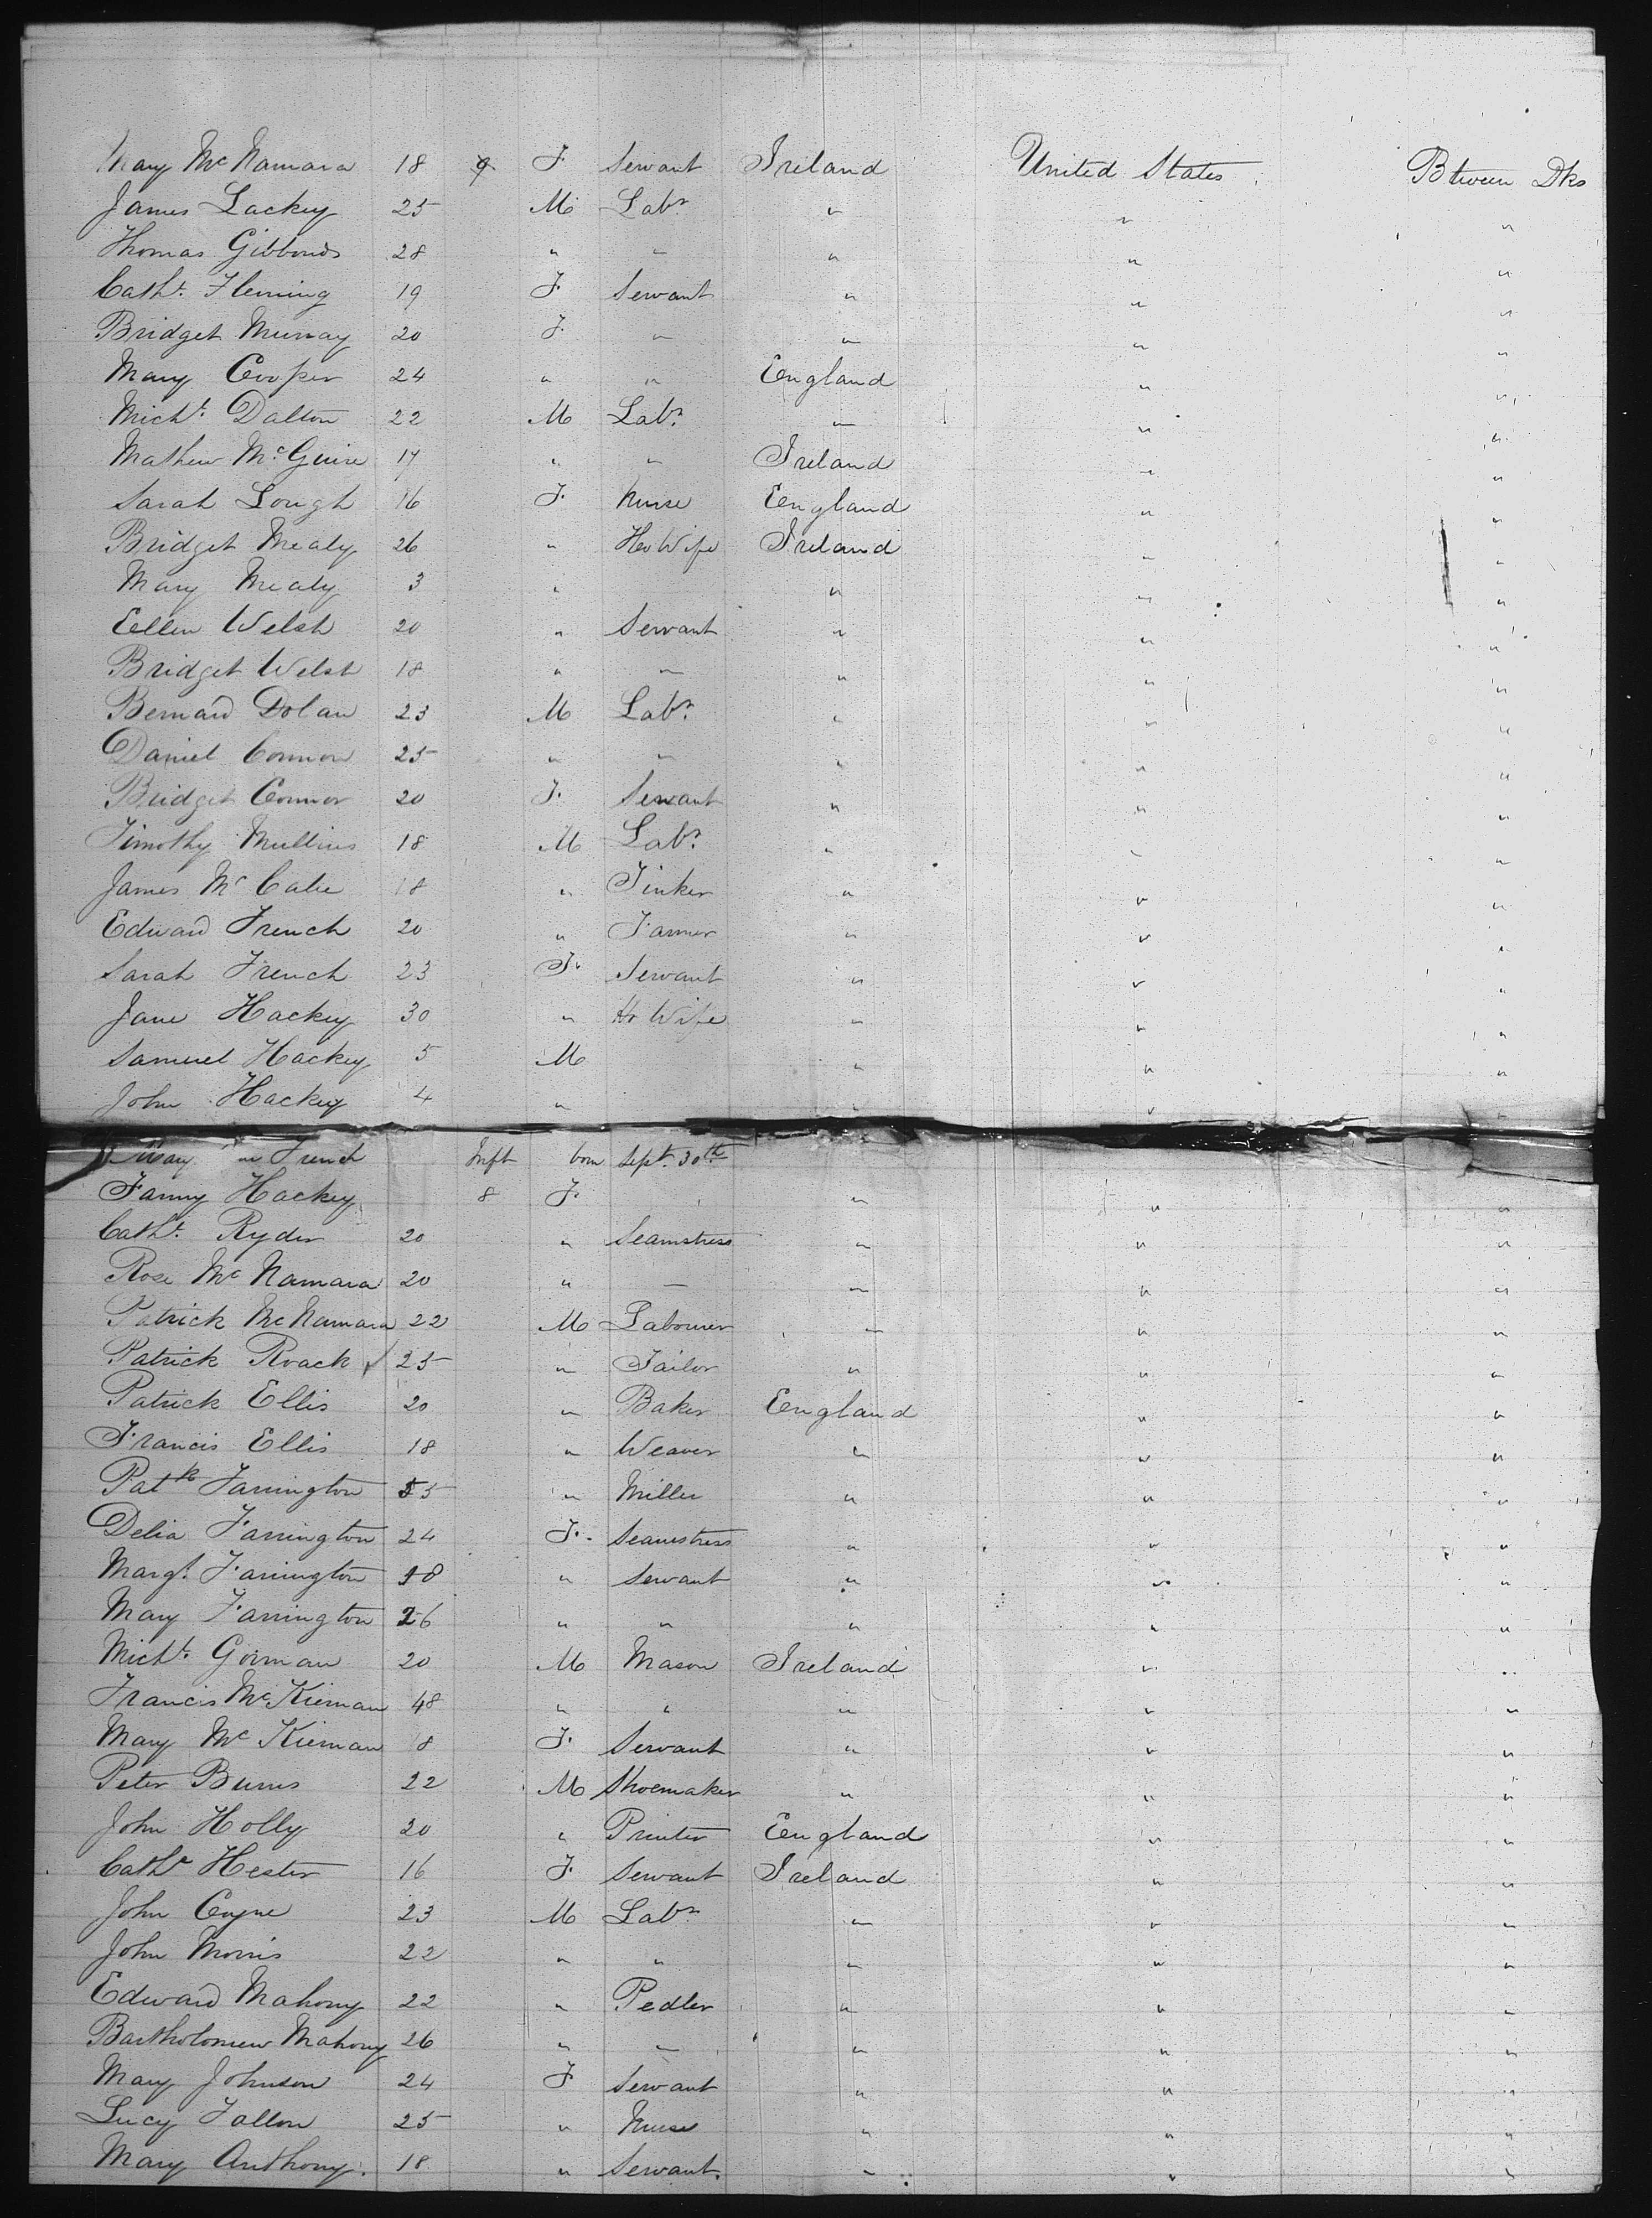 Mary McNamara 18 9 F. Servant Ireland United States Btween Dks
James Lackey 25 M Labr. " " "
Thomas Gibbons 28 " " " " "
Catht. Fleming 19 F. Servant " " "
Bridget Murray 20 F. " " " "
Mary Cooper 24 " " England " "
Michl. Dalton 22 M Labr. " " "
Mathew McGuire 17 " " Ireland " "
Sarah Lough 16 F. Nurse England " "
Bridget Mealy 26 " Ho Wife Ireland " "
Mary Mealy 3 " " " "
Ellen Welsh 20 " Servant " " "
Bridget Welsh 18 " " " " "
Bernard Dolan 23 M Labr. " " "
Daniel Connor 25 " " " " "
Bridget Connor 20 F. Servant " " "
Timothy Mullins 18 M Labr. " " "
James McCabe 18 " Tinker " " "
Edward French 20 " Farmer " " "
Sarah French 23 F. Servant " " "
Jane Hackey 30 " Ho Wife " " "
Samuel Hackey 5 M " " "
John Hackey 4 " " " "
Mary French Inft born Sept. 30th
Fanny Hackey 8 F. " " "
Catht. Ryder 20 " Seamstress " " "
Rose McNamara 20 " — " " "
Patrick McNamara 22 M Labourer " " "
Patrick Roack 25 " Tailor " " "
Patrick Ellis 20 " Baker England " "
Francis Ellis 18 " Weaver " " "
Patk Farrington 55 " Miller " " "
Delia Farrington 24 F. Seamstress " " "
Margt. Farrington 18 " Servant " " "
Mary Farrington 26 " " " " "
Michl. Gorman 20 M Mason Ireland " "
Francis McKiernan 48 " " " " "
Mary McKiernan 8 F. Servant " " "
Peter Burns 22 M Shoemaker " " "
John Holly 20 " Printer England " "
Catht Hester 16 F. Servant Ireland " "
John Coyne 23 M Labr. " " "
John Morris 22 " " " " "
Edward Mahony 22 " Pedler " " "
Bartholomew Mahony 26 " " " " "
Mary Johnson 24 F Servant " " "
Lucy Fallon 25 " Nurse " " "
Mary Anthony. 18 " Servant. " " "